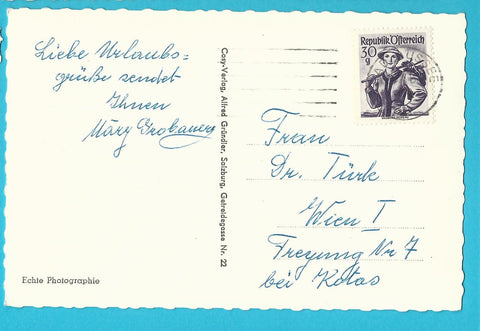 Liebe Urlaubs=
grüße sendet
Ihnen
Märy Grobauer
Echte Photographie
Cosy-Verlag, Alfred Gründler, Salzburg, Getreidegasse Nr. 22
Republik Österreich
30
g
Frau
Dr. Türk
Wien I
Freyung Nr 7
bei Kotas